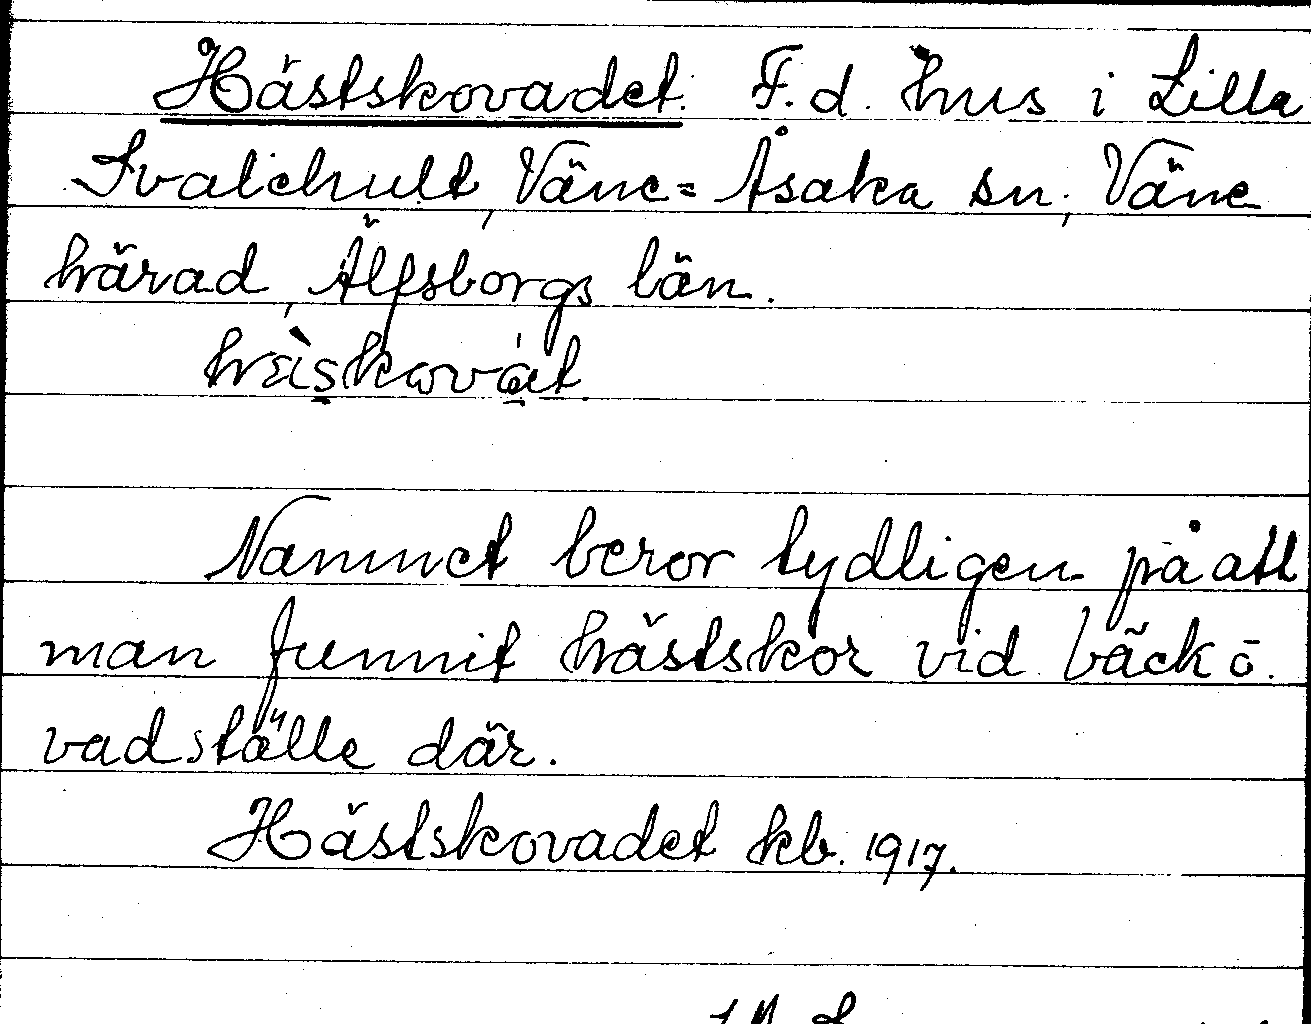 Hästskovadet. F.d. hus i Lilla
Svalehult, Väne-Åsaka sn, Väne
härad, Älfsborgs län.
Namnet beror tydligen på att
man funnit hästskor vid bäck o.
vadställe där.
Hästskovadet kb. 1917.